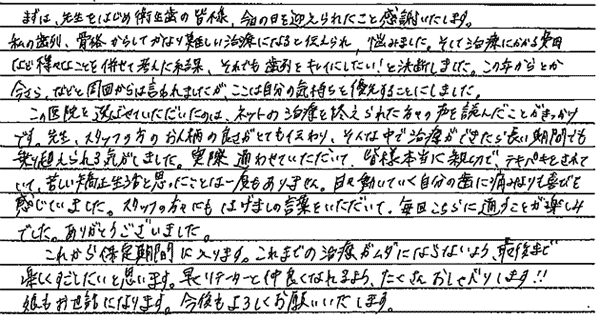 まずは、先生をはじめ衛生歯の皆様、今日の日を迎えられたこと感謝いたします。
私の歯列、骨格からしてかなり難しい治療になると伝えられ、悩みました。そして治療にかかる費用
など様々なことを併せて考えた結果、それでも歯列をキレイにしたい!と決断しました。この年からとか
今さら、などと周囲からは言われましたが、ここは自分の気持ちを優先することにしました。
この医院を選ばせていただいたのは、ネットの治療を終えられた方々の声を読んだことがきっかけ
です。先生、スタッフの方のお人柄の良さがとても伝わり、そんな中で治療ができたら長い期間でも
乗り越えられる気がしました。実際通わせていただいて、皆様本当に親切で、テキパキとされて
いて、苦しい矯正生活と思ったことは一度もありません。日々動いていく自分の歯に痛みよりも喜びを
感じていました。スタッフの方々にもはげましの言葉をいただいて、毎回こちらに通うことが楽しみ
でした。ありがとうございました。
これから保定期間に入ります。これまでの治療がムダにならないよう、最後まで
楽しくすごしたいと思います。早くリテーナーと仲良くなれるよう、たくさんおしゃべりします!!
娘もお世話になります。今後もよろしくお願いいたします。